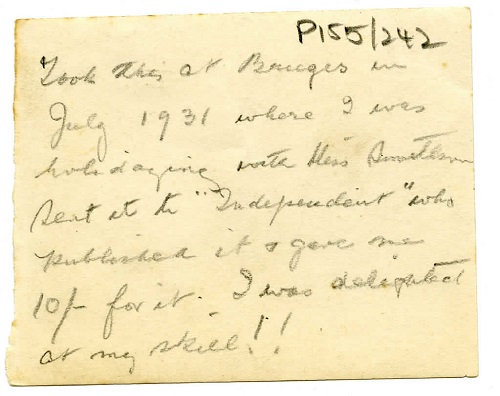 P155/242
Took this at Bruges in
July 1931 where I was
holidaying with Miss
Sent it to "Independent" who
published it & gave me
10/- for it. I was delighted
at my skill!!